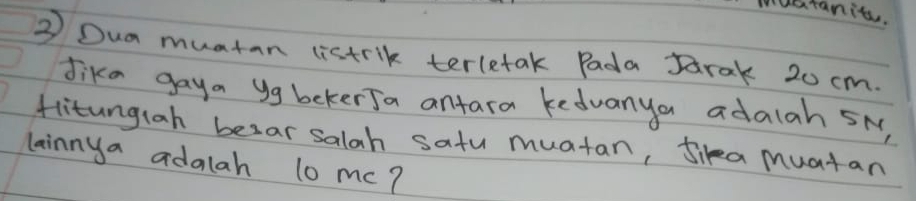 muatan itu.
3) Dua muatan listrik terletak Pada Jarak 20 cm.
Jika gaya yg bekerJa antara keduanya adalah 5N,
Hitunglah besar salah satu muatan, Jika Muatan
lainnya adalah 10 mc?